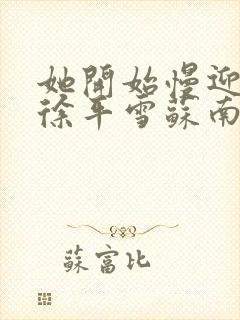 她開始慢迎
徐平雪蘇南
蘇富比